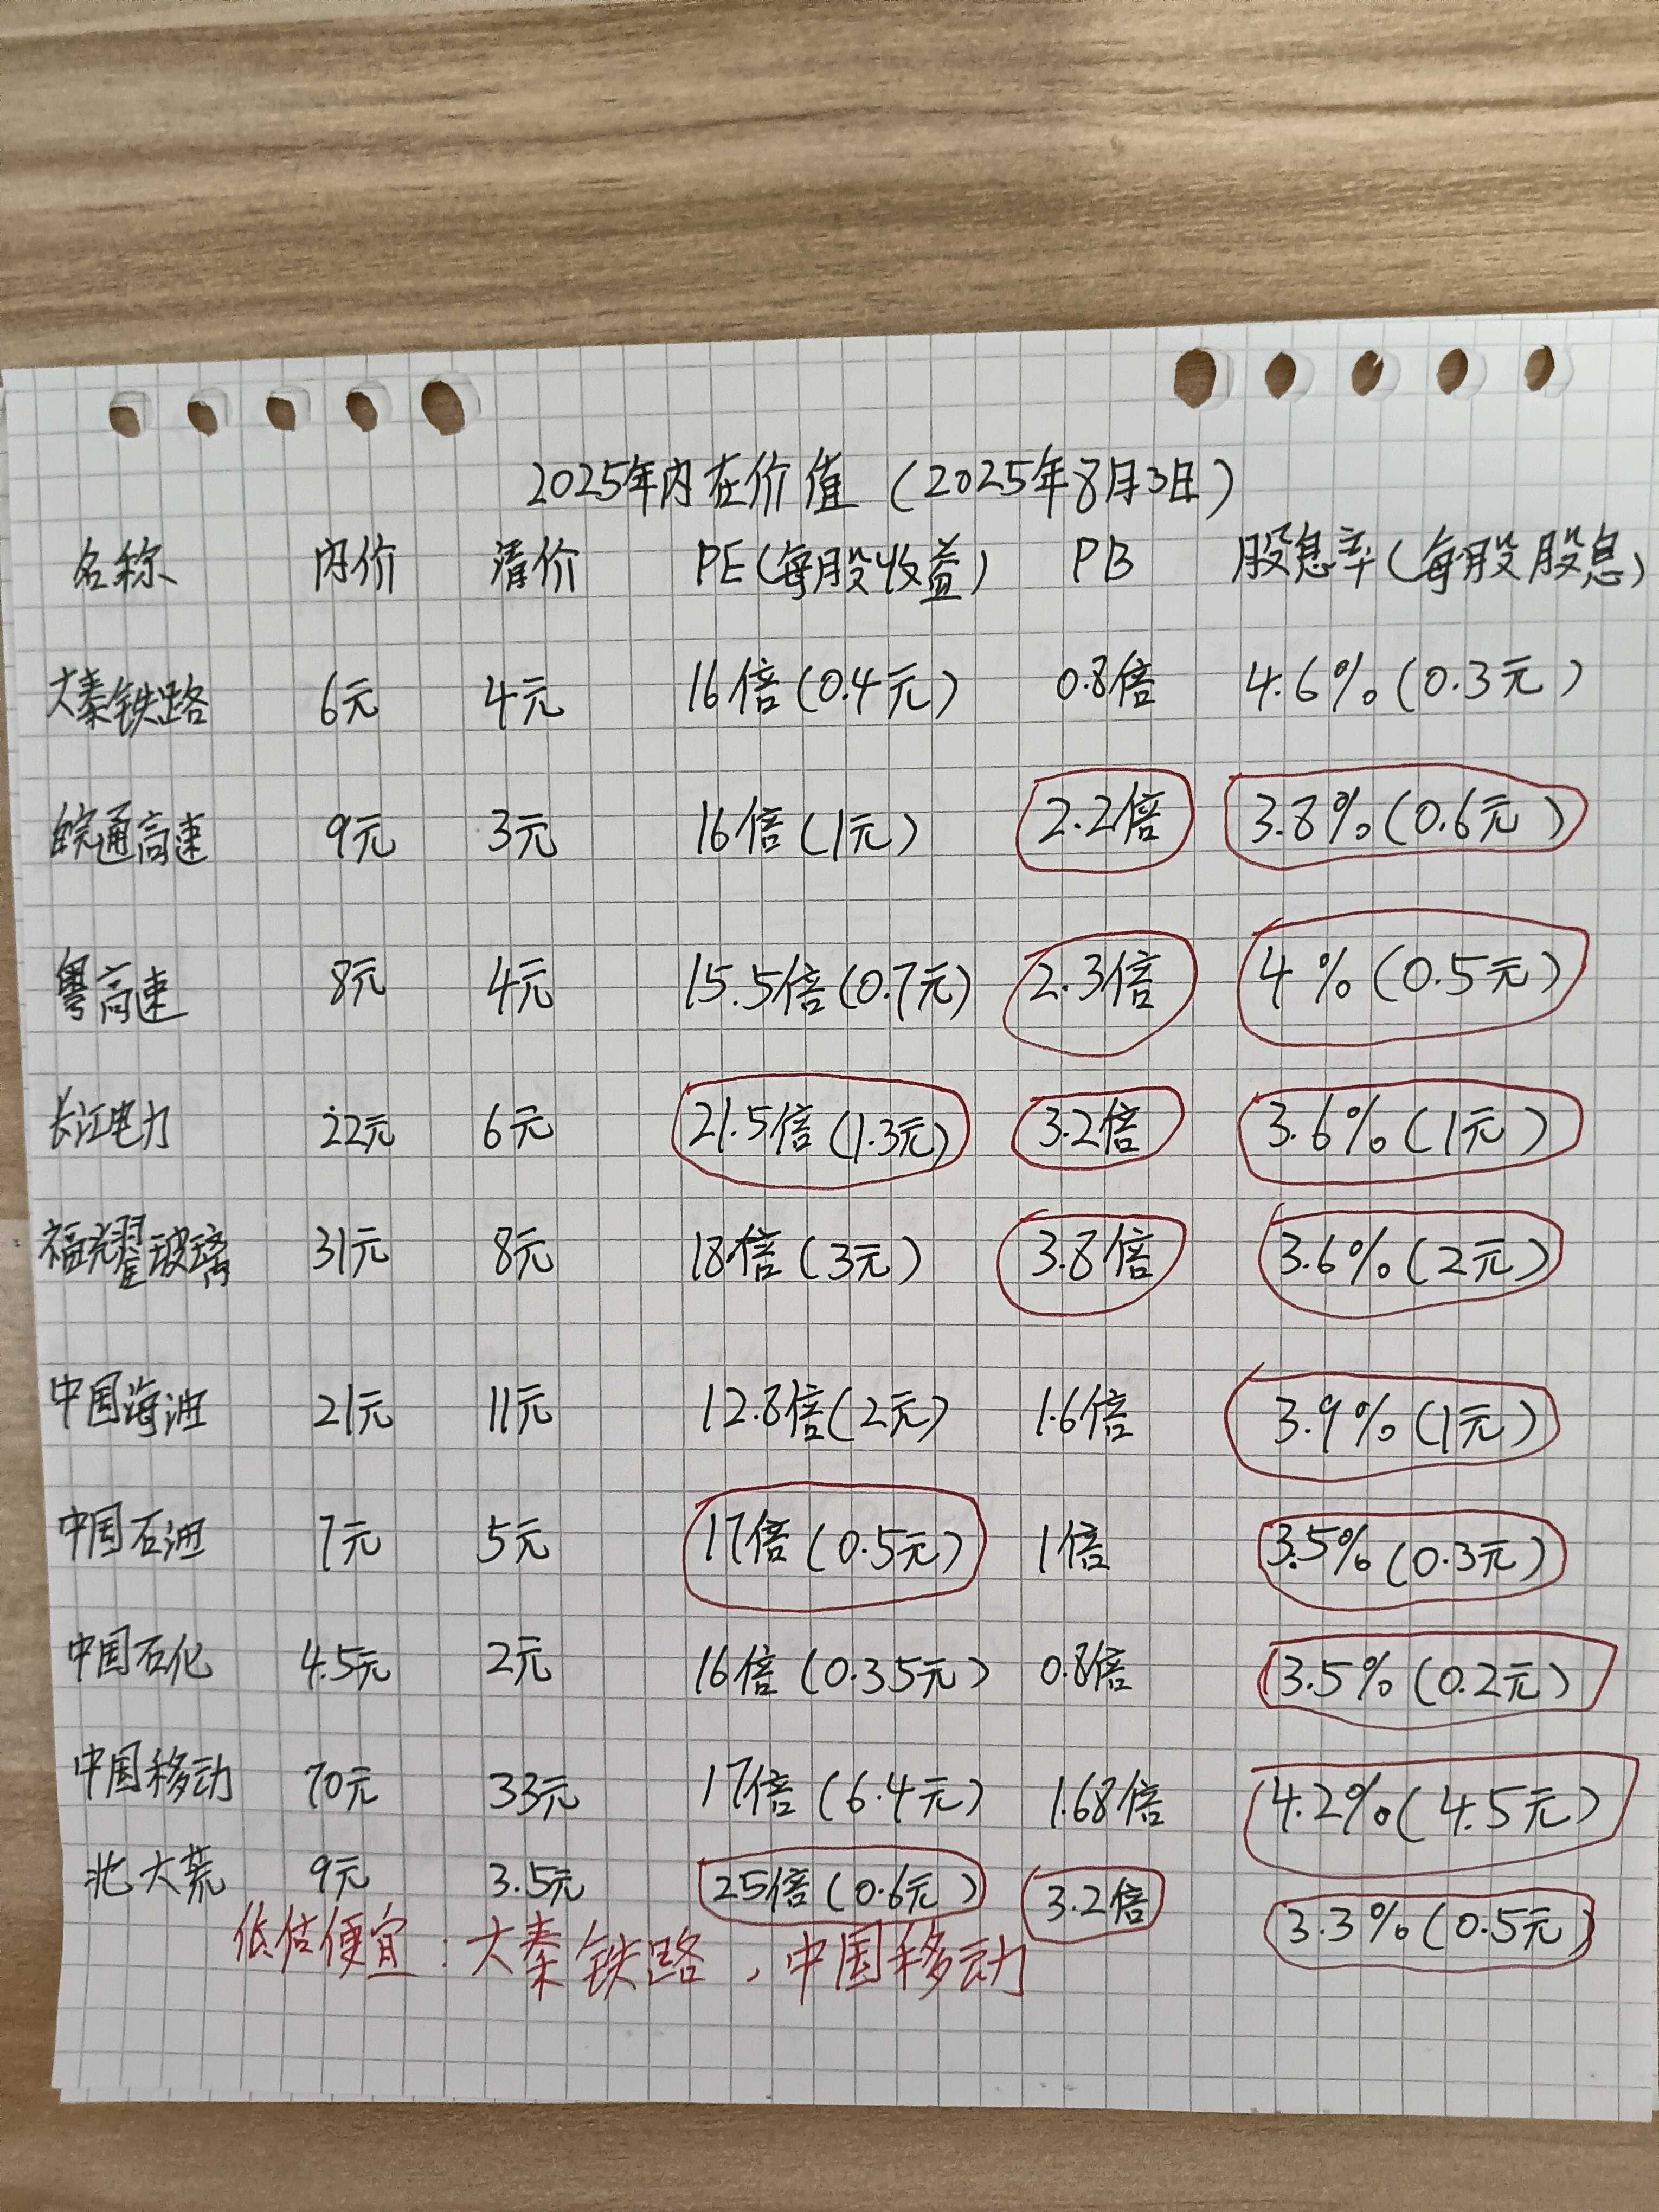 2025年内在价值（2025年8月3日）
名称 内价 清价 PE（每股收益） PB 股息率（每股股息）
大秦铁路 6元 4元 16倍（0.4元） 0.8倍 4.6%（0.3元）
皖通高速 9元 3元 16倍（1元） 2.2倍 3.8%（0.6元）
粤高速 8元 4元 15.5倍（0.7元） 2.3倍 4%（0.5元）
长江电力 22元 6元 21.5倍（1.3元） 3.2倍 3.6%（1元）
福耀玻璃 31元 8元 18倍（3元） 3.8倍 3.6%（2元）
中国海油 21元 11元 12.8倍（2元） 1.6倍 3.9%（1元）
中国石油 7元 5元 17倍（0.5元） 1倍 3.5%（0.3元）
中国石化 4.5元 2元 16倍（0.35元） 0.8倍 3.5%（0.2元）
中国移动 70元 33元 17倍（6.4元） 1.68倍 4.2%（4.5元）
北大荒 9元 3.5元 25倍（0.6元） 3.2倍 3.3%（0.5元）
低估便宜：大秦铁路，中国移动